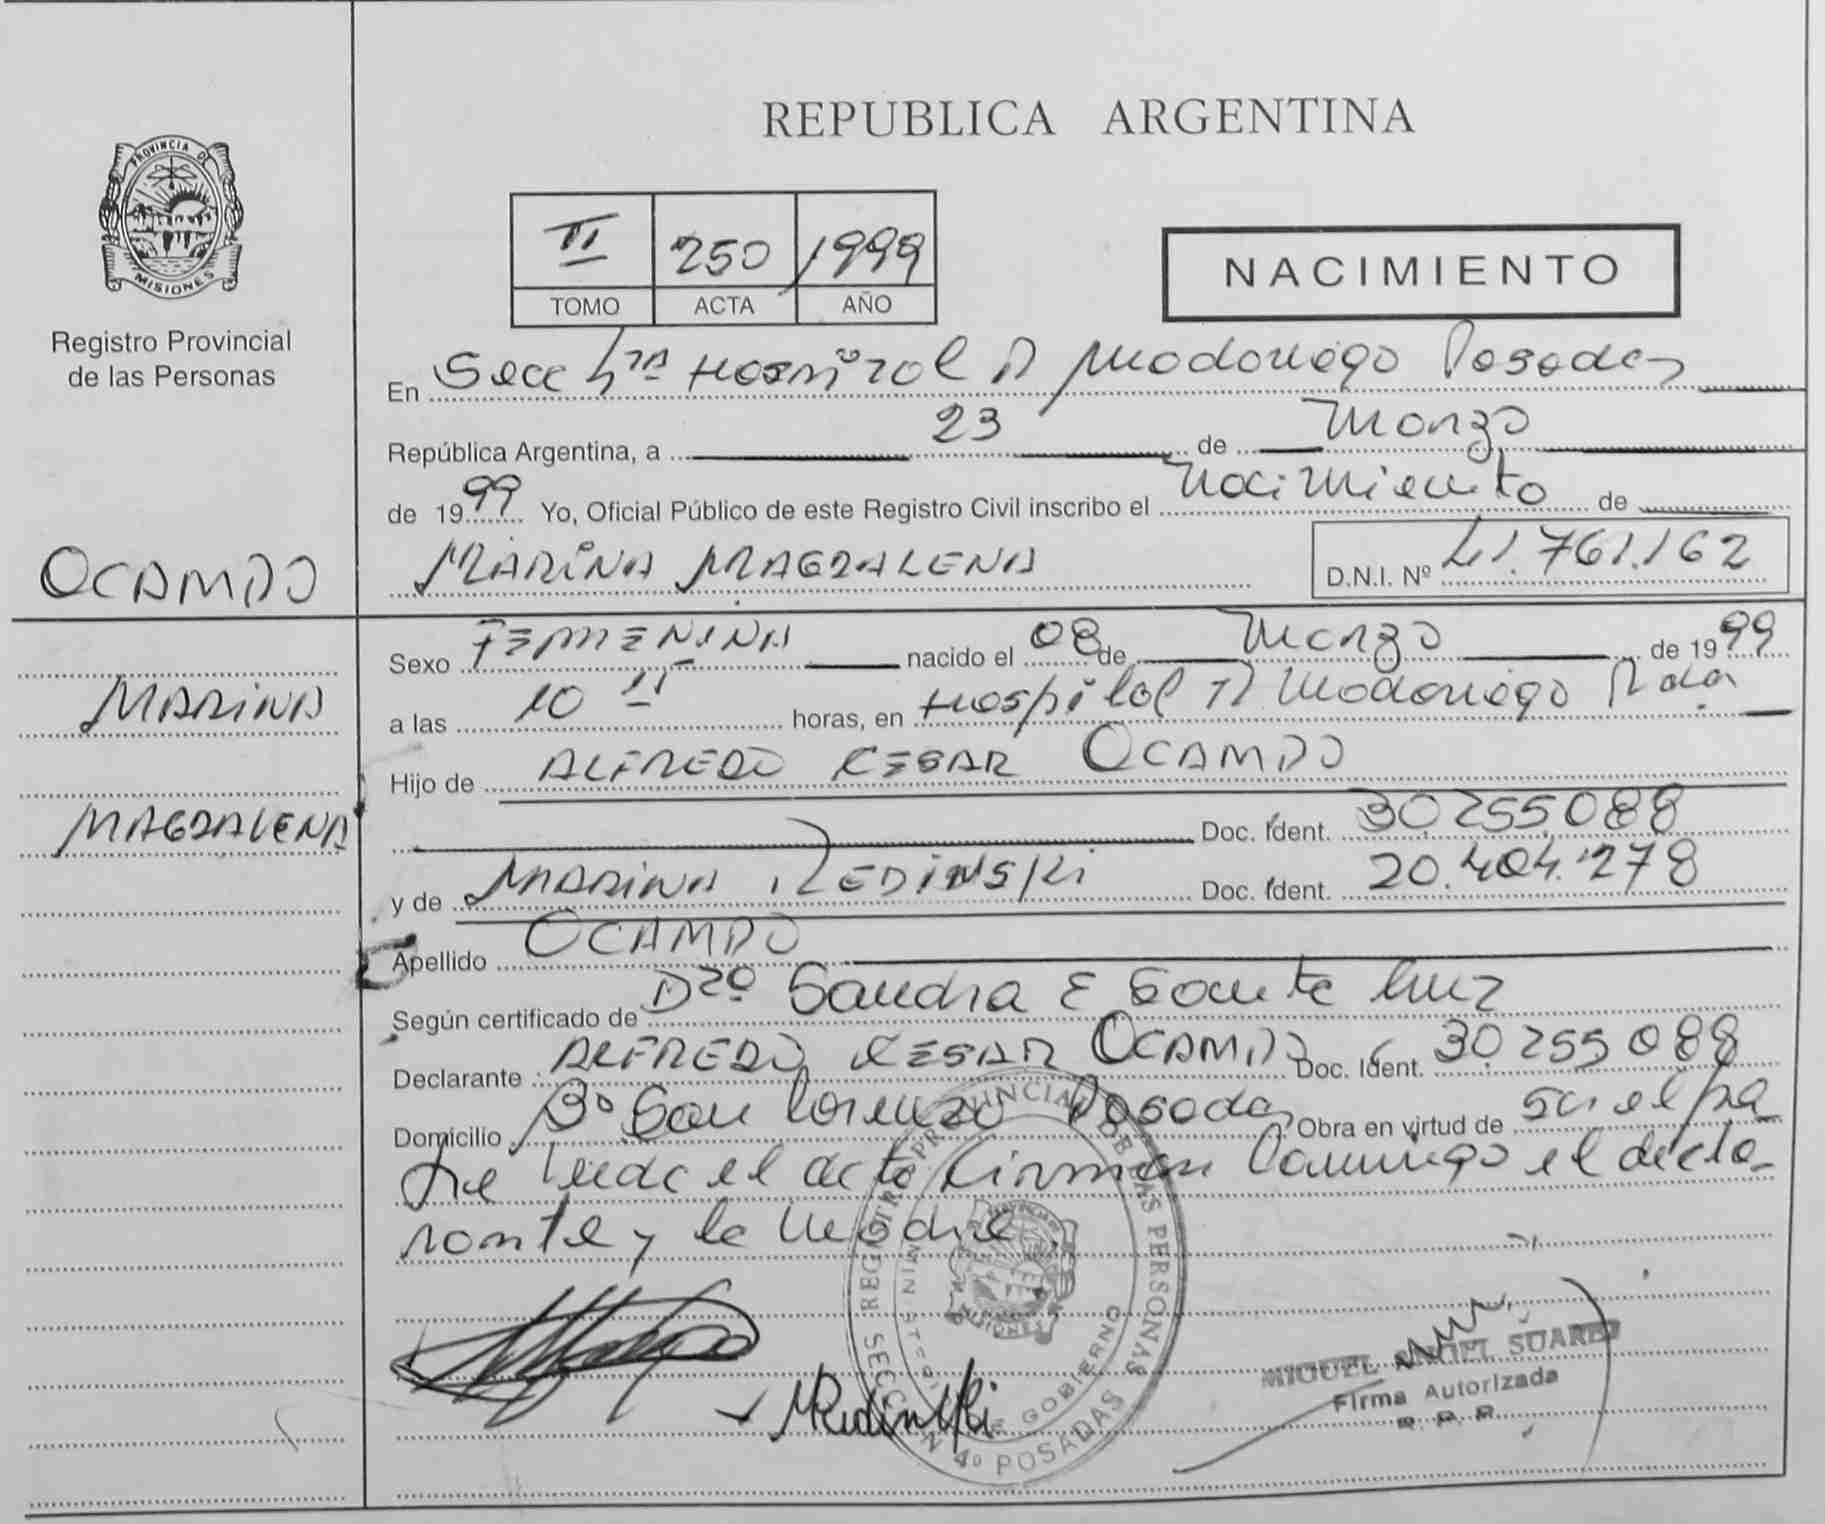 REPUBLICA ARGENTINA
PROVINCIA DE MISIONES
Registro Provincial
de las Personas
II 250 1999
TOMO ACTA AÑO
NACIMIENTO
En Secc 4ta Hospital R Madariaga Posadas
República Argentina, a 23 de Marzo
de 1999 Yo, Oficial Público de este Registro Civil inscribo el Nacimiento de
OCAMPO
MARINA MAGDALENA D.N.I. Nº 41.761.162
MARINA
MAGDALENA
Sexo FEMENINA nacido el 08 de Marzo de 1999
a las 10 horas, en Hospital R Madariaga Pdas
Hijo de ALFREDO CESAR OCAMPO
Doc. Ident. 30.255.088
y de MARINA REDINSKI Doc. Ident. 20.404.278
Apellido OCAMPO
Según certificado de Dra. Sandra E Santa Cruz
Declarante ALFREDO CESAR OCAMPO Doc. Ident. 30.255.088
Domicilio Bº San Lorenzo Posadas Obra en virtud de ser el pa
dre Leida el acta firman conmigo el decla
rante y la madre.
REGISTRO PROVINCIAL DE LAS PERSONAS
MINISTERIO DE GOBIERNO
MISIONES
SECCION 4º POSADAS
MRedinski
MIGUEL ANGEL SUAREZ
Firma Autorizada
R.P.P.